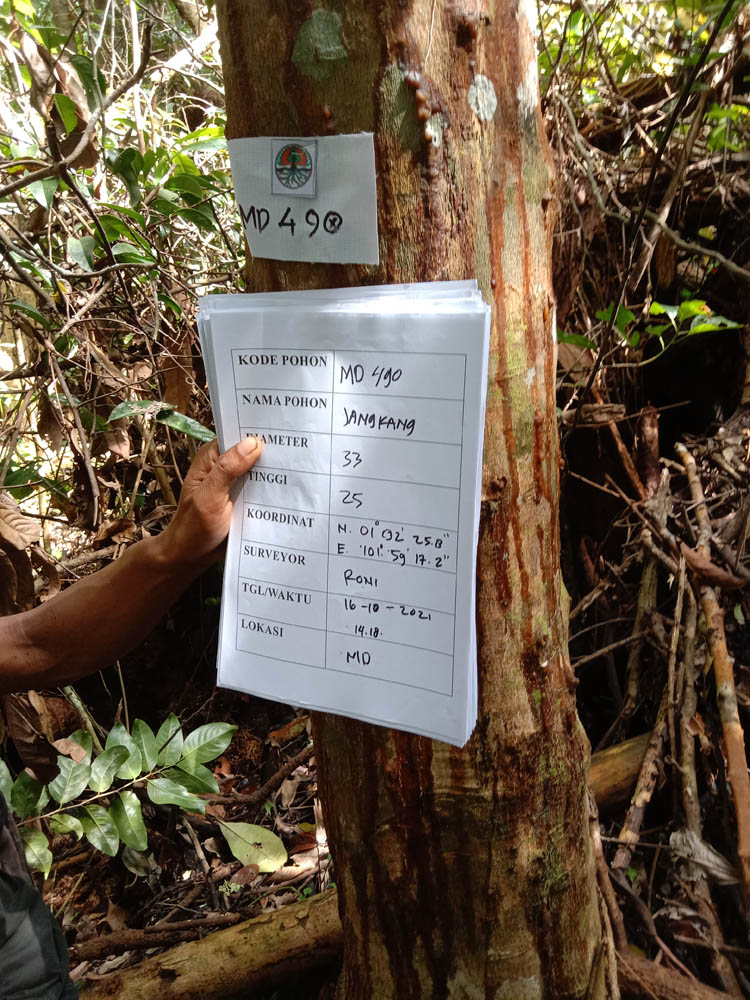 MD 490
KODE POHON MD 490
NAMA POHON JANGKANG
DIAMETER 33
TINGGI 25
KOORDINAT N. 01° 32' 25.8"
E. 101° 59' 17.2"
SURVEYOR RONI
TGL/WAKTU 16-10-2021
14.18.
LOKASI MD